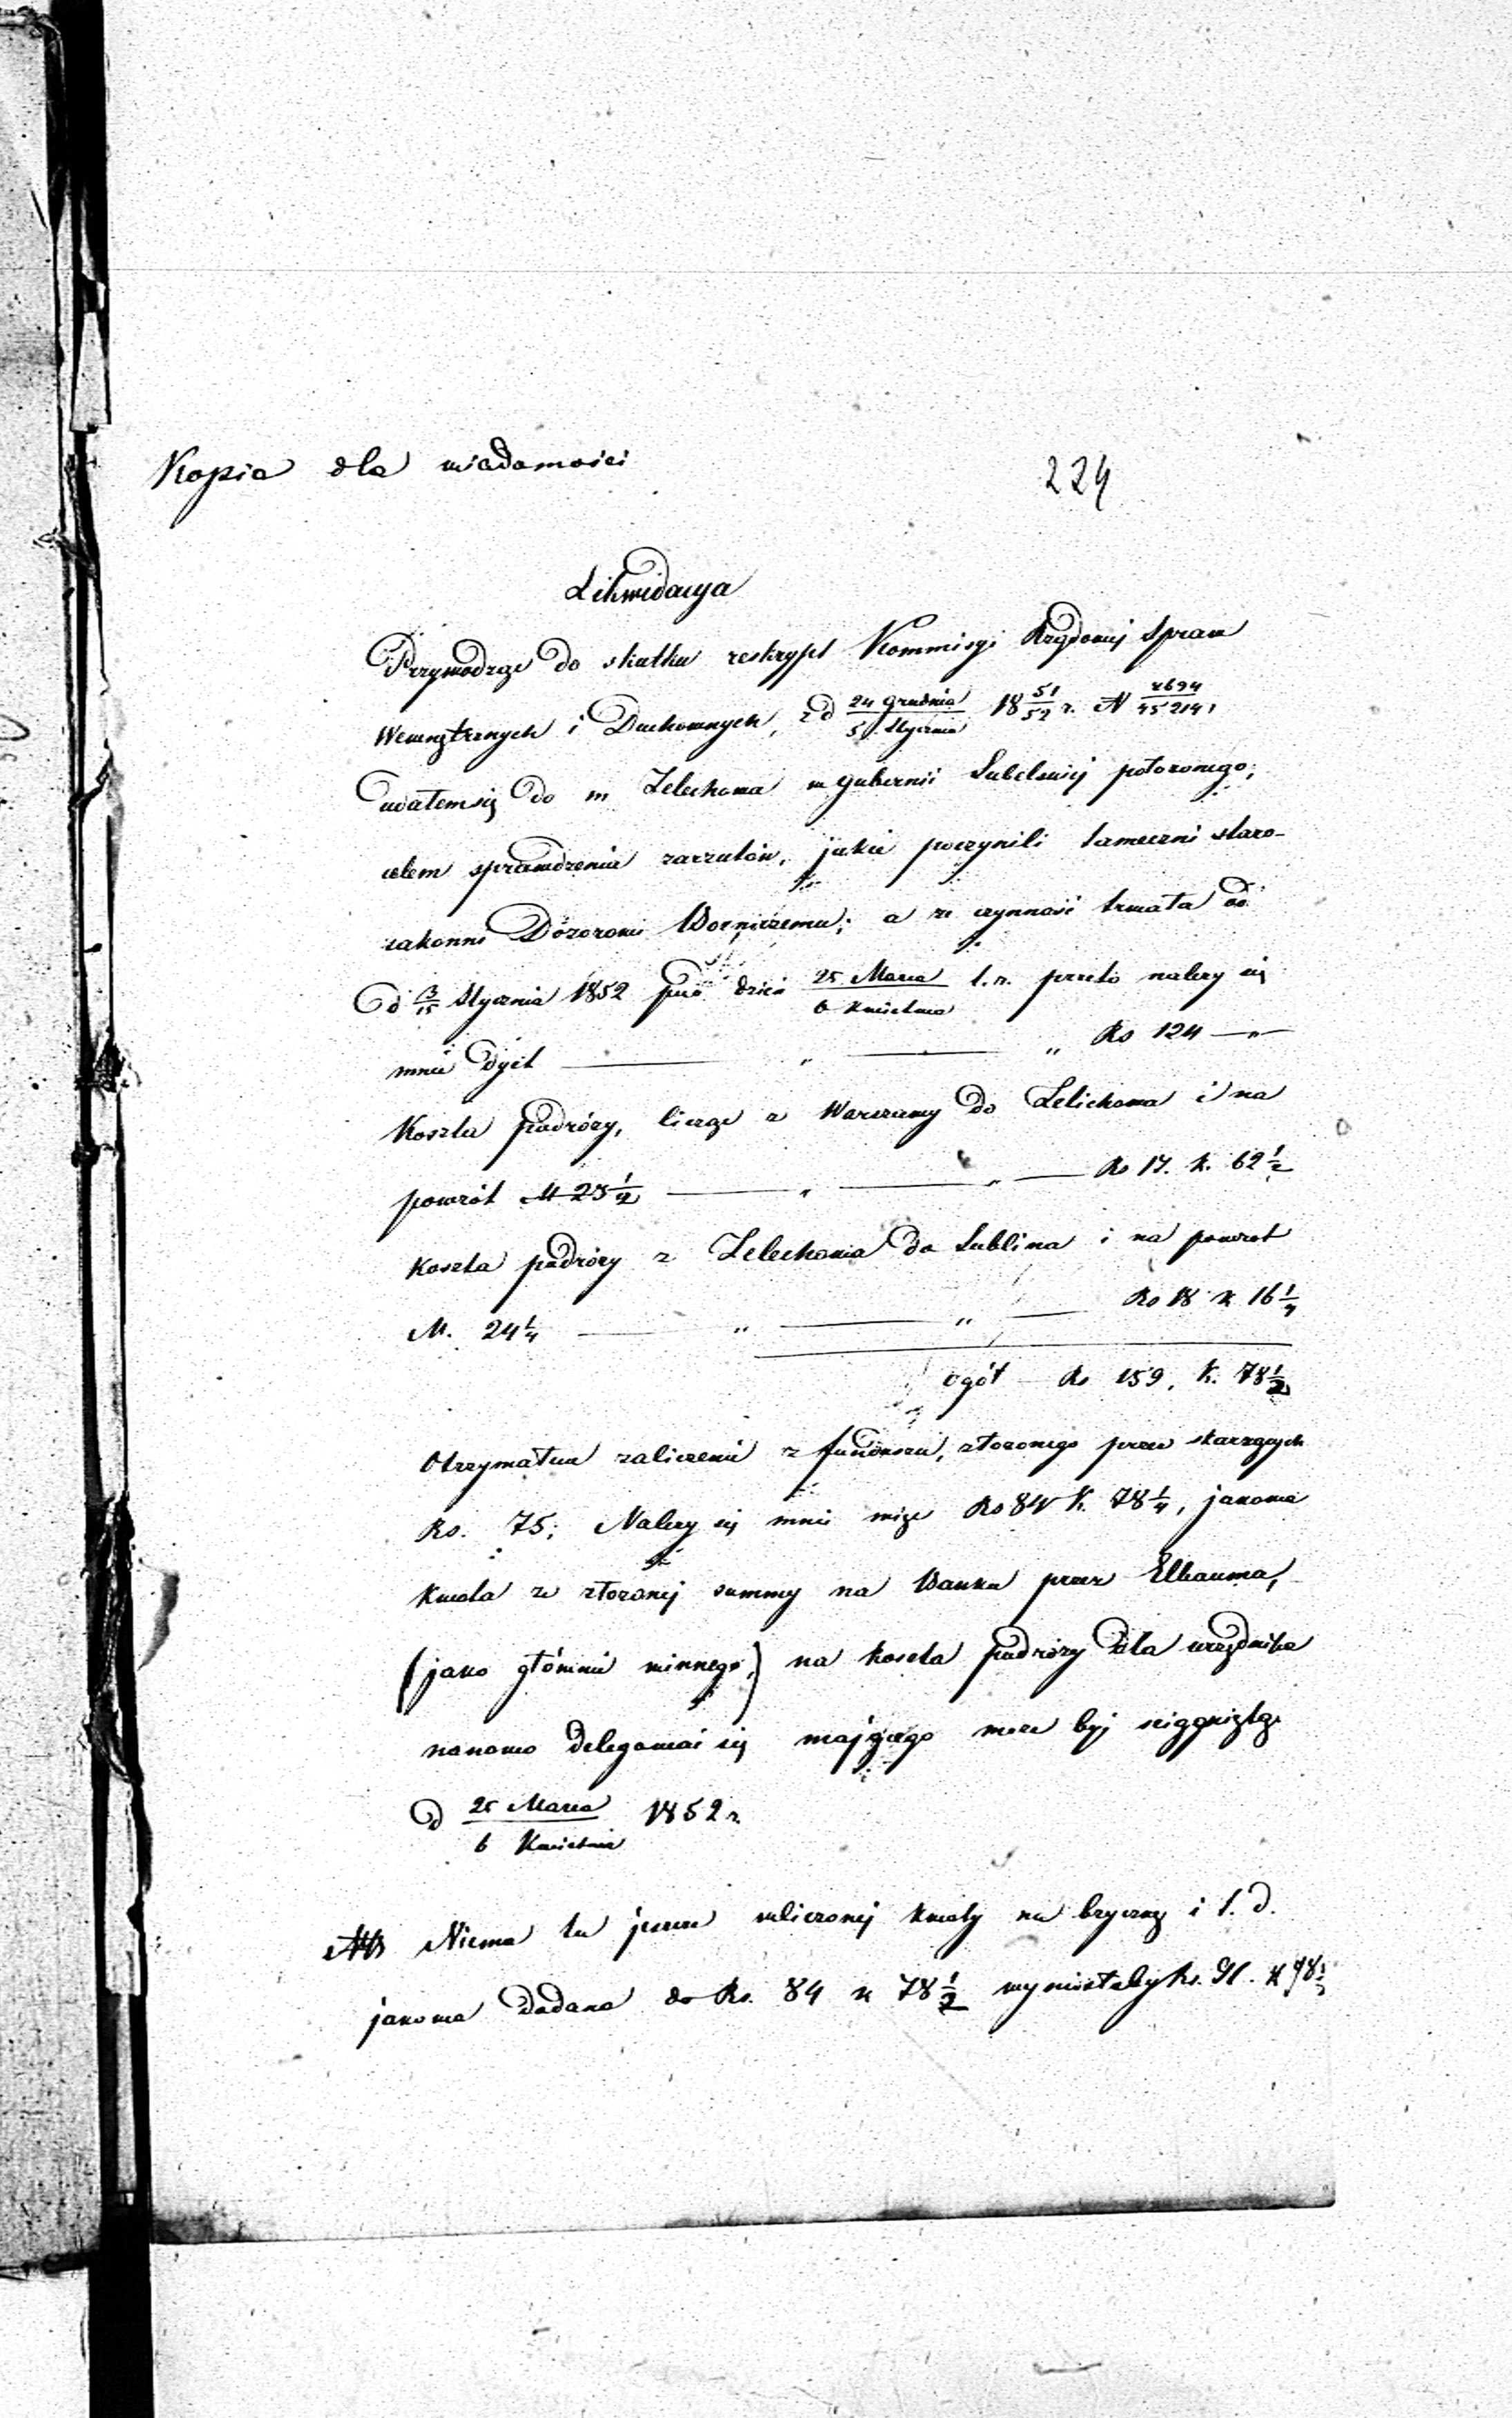 Kopia dla wiadomości
224
Likwidacya
Przywodząc do skutku reskrypt Kommisyi Rządowej Spraw
Wewnętrznych i Duchownych, z d 24 Grudnia / 5 Stycznia 18 51/52 r. N 2694 / 45214,
udałem się do m Żelechowa w gubernii Lubelskiej położonego,
celem sprawdzenia zarzutów, jakie poczynili tameczni staro-
zakonni Dozorowi Bożniczemu; a że czynność trwała od
d 3/15 Stycznia 1852 po dzień 25 Marca / 6 Kwietnia t. r. przeto należy się
mnie dyet — „ — „ Rs 124 — „
Koszta podróży, licząc z Warszawy do Żelichowa i na
powrót M 23 1/2 — „ — „ — Rs 17. k. 62 1/2
Koszta podróży z Żelechowa do Lublina i na powrot
M. 24 1/4 — „ — „ — Rs 18 k 16 1/4
ogół Rs 159. k. 78 1/2
Otrzymałem zaliczenie z funduszu, złożonego przez skarzących
Rs. 75; Należy się mnie więc Rs 84 k. 78 1/4, jakowa
kwota ze złożonej summy na Banku przez Elbauma,
(jako głównie winnego,) na koszta podróży dla urzędnika
nanowo delegować się mającego może być ściągniętą
d 25 Marca / 6 Kwietnia 1852 r.
NB Niema tu jeszcze wliczonej kwoty na bryczkę i t. d.
jakowa dodana do Rs. 84 k 78 1/2 wyniosłaby Rs. 91. k 98 1/2